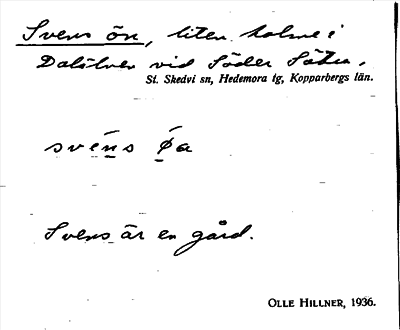 Svens ön, liten holme i
Dalälven vid Söder Sätra.
St. Skedvi sn, Hedemora tg, Kopparbergs län.
svéns ǿa
Svens är en gård.
OLLE HILLNER, 1936.